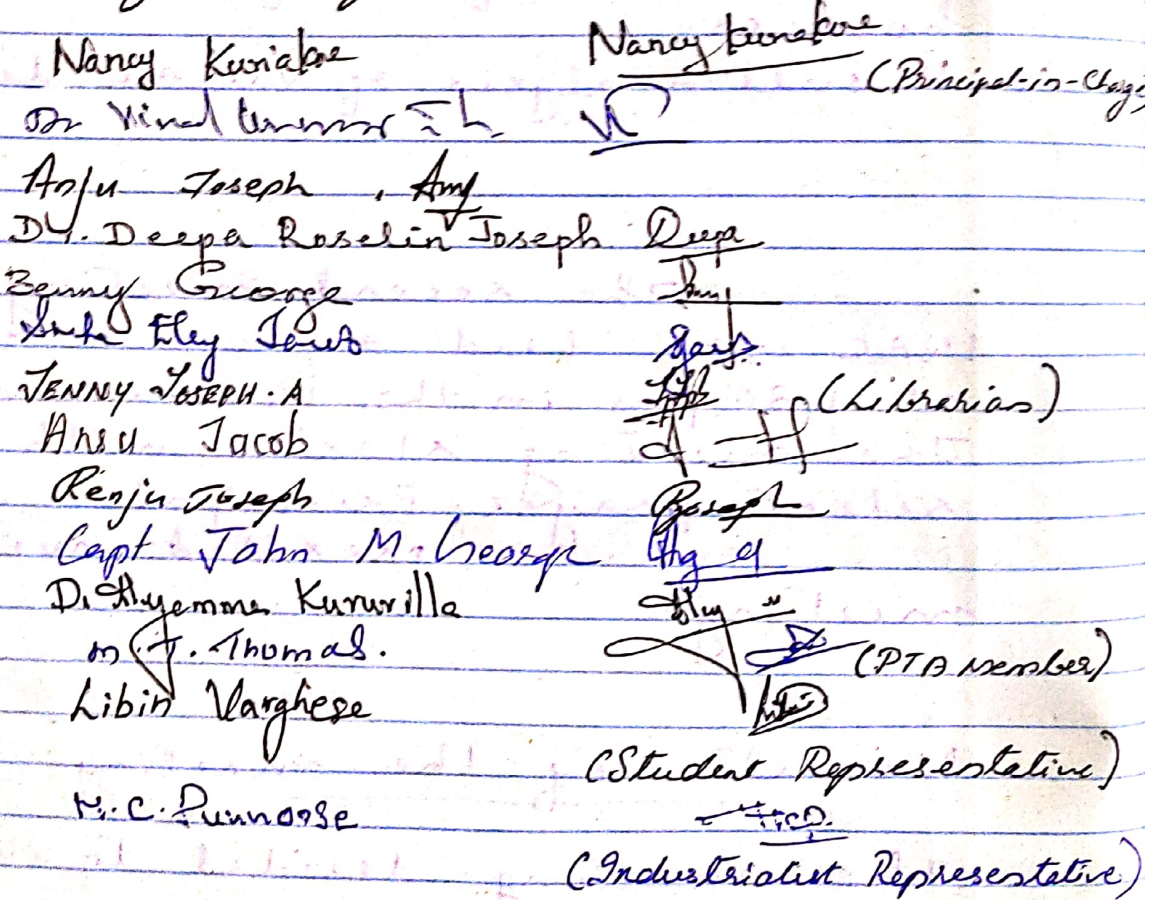 Nancy Kuriakose Nancy Kuriakose
(Principal-in-Charge
Dr Vinod
Anju Joseph, Anj
Dr. Deepa Roselin Joseph Deepa
Benny George
Eley
JENNY JOSEPH. A (Librarian)
Ansu Jacob
Renju Joseph RJoseph
Capt. John M. George
Dr. Aleyamma Kuruvilla
M. J. Thomas. (PTA Member)
Libin Varghese
(Student Representative)
M. C. Punnoose
(Industrialist Representative)